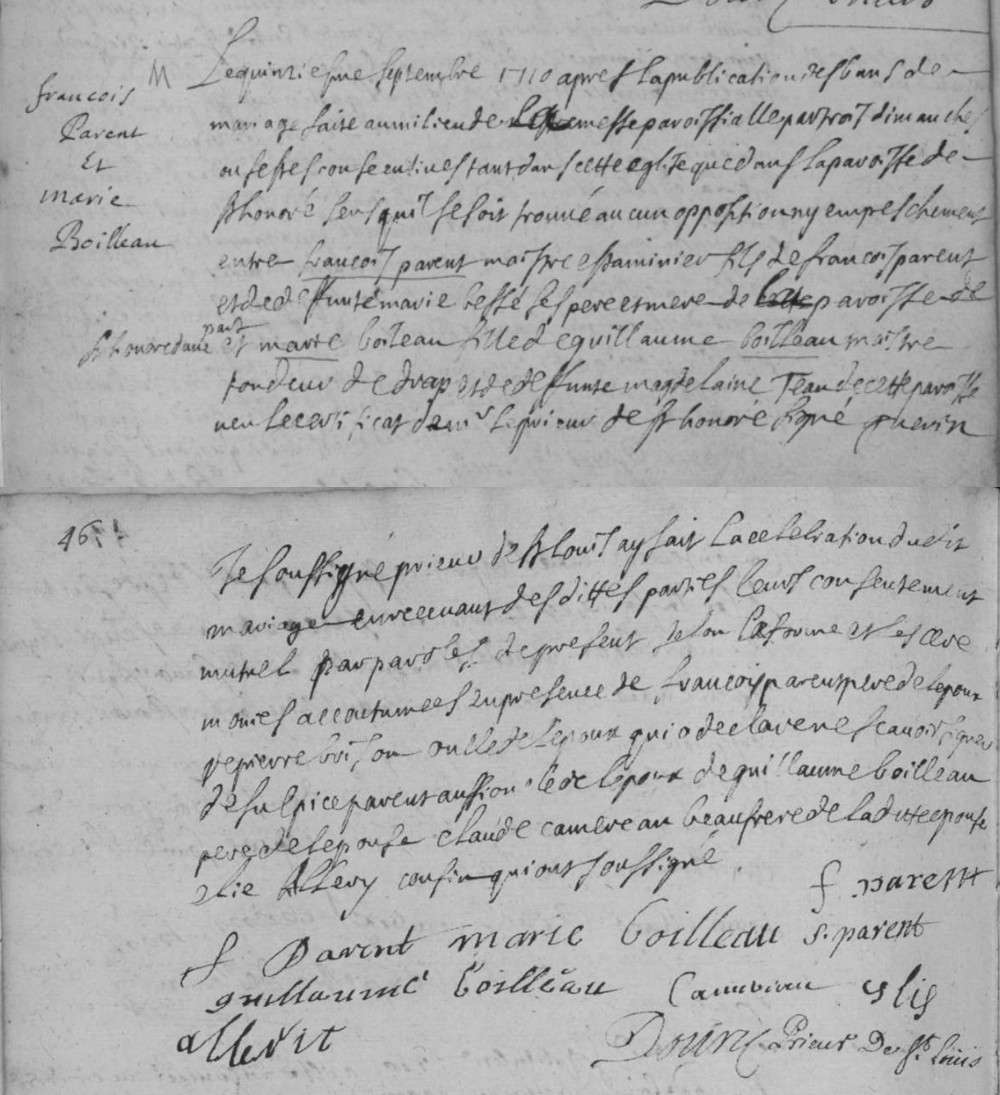 M
francois
Parent
Et
marie
Boilleau
Lequinziesme septembre 1710 apres la publication des bans de
mariage faite au milieu de la messe paroissialle par trois dimanches
ou festes consecutives tant dans cette eglise que dans la paroisse de
st honoré sens quil se soit trouvé aucun opposition ny empreschement
entre francois parent maistre estaminier fils de francois parent
et de deffunte marie bessé ses pere et mere de paroisse de
st honore dune part et marie boileau fille de guillaume boilleau maistre
tondeur de drap et de deffunte magdelaine Teau de cette paroisse
veu le certificat de mr le prieur de st honoré signé guerin
46
Je soussigné prieur de st louis ay fait la celebration du dit
mariage en recevant des dittes parties leurs consentement
mutuel par paroles de present selon la forme et les cere
monies accoutumees en presence de francois parent pere de lepoux
de pierre boison oncle de lepoux qui o declare ne scavoir signer
de sulpice parent aussi oncle de lepoux de guillaume boilleau
pere de lepouse claude camereau beaufrere de la ditte epouse
elie allevy cousin qui ont soussigné
f parent
f Parent marie boilleau s. parent
guillaume boilleau Camereau eslis
allevit
Prieur De st Louis